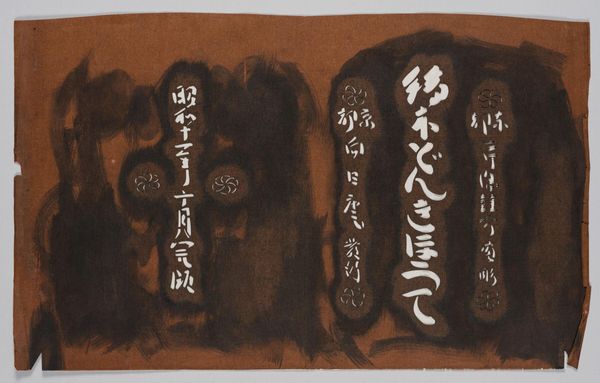 東都 芹澤銈介 彫
繪本どんきほうて
京都 向日庵發行
昭和十一年十月完版